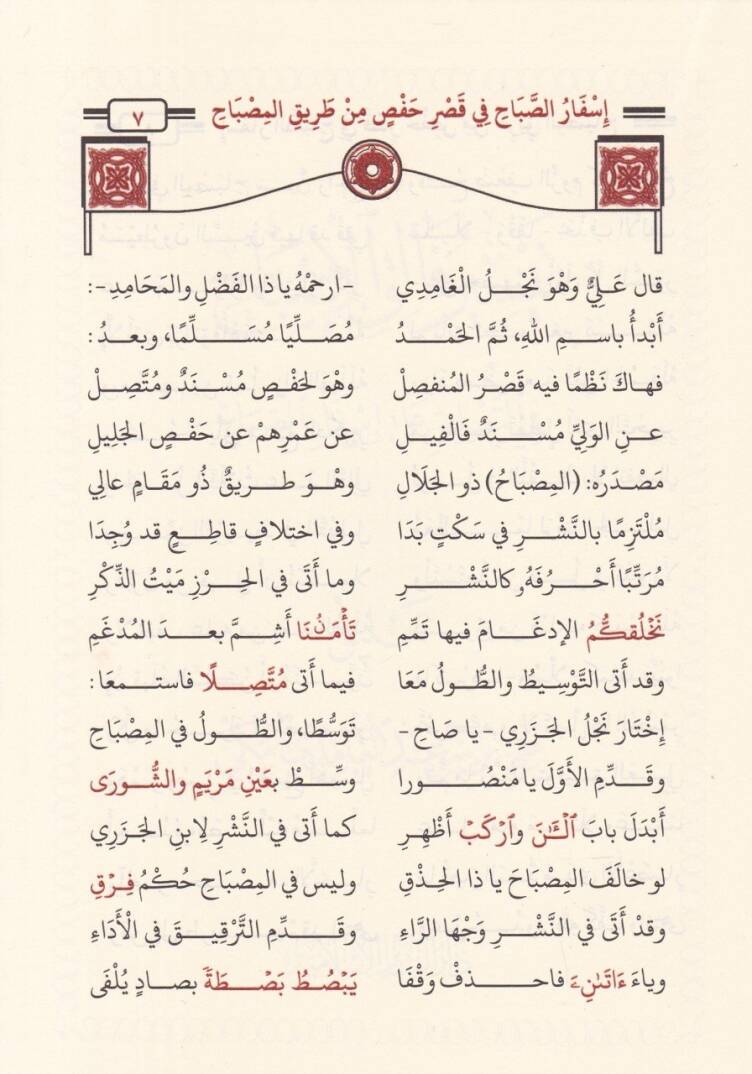 إِسْفَارُ الصَّبَاحِ فِي قَصْرِ حَفْصٍ مِنْ طَرِيقِ المِصْبَاحِ ٧
قال عَلِيٌّ وَهْوَ نَجْلُ الْغَامِدِي -ارحمْهُ يا ذا الفَضْلِ والمَحَامِدِ-:
أَبْدأُ باسمِ اللهِ، ثُمَّ الحَمْدُ مُصَلِّيًا مُسَلِّمًا، وبعدُ:
فهاكَ نَظْمًا فيه قَصْرُ المُنفصِلْ وهْوَ لحَفْصٍ مُسْنَدٌ ومُتَّصِلْ
عنِ الوَلِيِّ مُسْنَدٌ فَالْفِيلِ عن عَمْرِهِمْ عن حَفْصٍ الجَلِيلِ
مَصْدَرُه: (المِصْبَاحُ) ذو الجَلَالِ وهْوَ طريقٌ ذُو مَقَامٍ عالِي
مُلْتَزِمًا بالنَّشْرِ في سَكْتٍ بَدَا وفي اختلافٍ قاطِعٍ قد وُجِدَا
مُرَتِّبًا أَحْرُفَهُ كالنَّشْرِ وما أَتَى في الحِرْزِ مَيْتُ الذِّكْرِ
نَخْلُقكُّمُ الإدغَامَ فيها تَمِّمِ تَأْمَنُنَا أَشِمَّ بعدَ المُدْغَمِ
وقد أَتَى التَّوْسِيطُ والطُّولُ مَعَا فيما أَتَى مُتَّصِلًا فاستمعَا:
إِخْتَارَ نَجْلُ الجَزَرِي -يا صَاحِ- تَوَسُّطًا، والطُّولُ في المِصْبَاحِ
وقَدِّمِ الأوَّلَ يا مَنْصُورا وسِّطْ بعَيْنِ مَرْيَمٍ والشُّورَى
أَبْدَلَ بابَ ءَآلْـَٰٔنَ وٱرْكَبْ أَظْهِرِ كما أَتَى في النَّشْرِ لِابنِ الجَزَرِي
لو خالَفَ المِصْبَاحَ يا ذا الحِذْقِ وليس في المِصْبَاحِ حُكْمُ فِرْقِ
وقدْ أَتَى في النَّشْرِ وَجْهَا الرَّاءِ وقَدِّمِ التَّرْقِيقَ في الْأَدَاءِ
وياءَ ءَاتَىٰنِۦَ فاحذفْ وَقْفَا يَبْصُطُ بَصْطَةً بصادٍ يُلْفَى